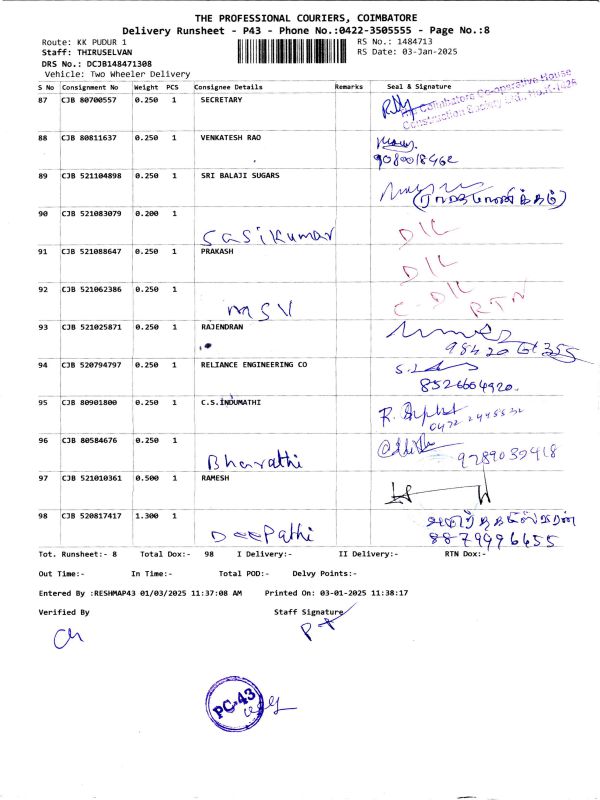 THE PROFESSIONAL COURIERS, COIMBATORE
Delivery Runsheet - P43 - Phone No.:0422-3505555 - Page No.:8
Route: KK PUDUR 1 RS No.: 1484713
Staff: THIRUSELVAN RS Date: 03-Jan-2025
DRS No.: DCJB148471308
Vehicle: Two Wheeler Delivery
S No Consignment No Weight PCS Consignee Details Remarks Seal & Signature
87 CJB 80700557 0.250 1 SECRETARY
Coimbatore Co-operative House
Construction Society Ltd.,
88 CJB 80811637 0.250 1 VENKATESH RAO
9080018462
89 CJB 521104898 0.250 1 SRI BALAJI SUGARS
90 CJB 521083079 0.200 1 Sasikumar D/L
91 CJB 521088647 0.250 1 PRAKASH D/L
92 CJB 521062386 0.250 1 MSV C-D/L RTN
93 CJB 521025871 0.250 1 RAJENDRAN
94 CJB 520794797 0.250 1 RELIANCE ENGINEERING CO
8526604920.
95 CJB 80901800 0.250 1 C.S.INDUMATHI
96 CJB 80584676 0.250 1 Bharathi
9789032418
97 CJB 521010361 0.500 1 RAMESH
98 CJB 520817417 1.300 1 Deepathi
8879996655
Tot. Runsheet:- 8 Total Dox:- 98 I Delivery:- II Delivery:- RTN Dox:-
Out Time:- In Time:- Total POD:- Delvy Points:-
Entered By :RESHMAP43 01/03/2025 11:37:08 AM Printed On: 03-01-2025 11:38:17
Verified By Staff Signature
PC-43